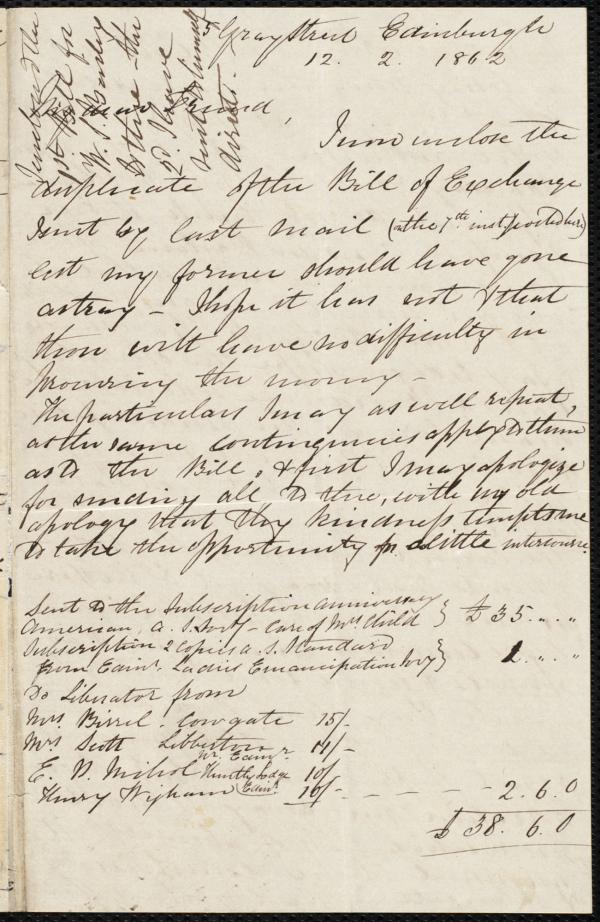 Gray Street Edinburgh
12. 2. 1862
I enclosed the
1st Bill for
W. S. Bailey
to thee - the
2d I have
sent
direct.
My dear Friend,
I now enclose the
duplicate of the Bill of Exchange
I sent by last mail (on the 7th inst. posted here)
lest my former should have gone
astray - I hope it has not & that
thou wilt have no difficulty in
procuring the money -
The particulars I may as well repeat,
as the same contingencies apply to them
as to the Bill, & first I may apologize
for sending all to thee, with my old
apology that thy kindness tempts me
to take the opportunity for a little intercourse.
Sent to the Subscription anniversary
American A. S. Socy - care of Mrs Child } £ 35 " "
Subscription 2 copies A. S. Standard
from Edinr. Ladies Emancipation Socy } 1 " "
Do Liberator from
Mrs. Birrel. Cowgate 15/-
Mrs Scott Libberton nr. Edinr. 11/-
E. P. Nichol Huntly Lodge 10/
Henry Wigham Edinr. 10/- - - - - 2. 6. 0
£ 38. 6. 0